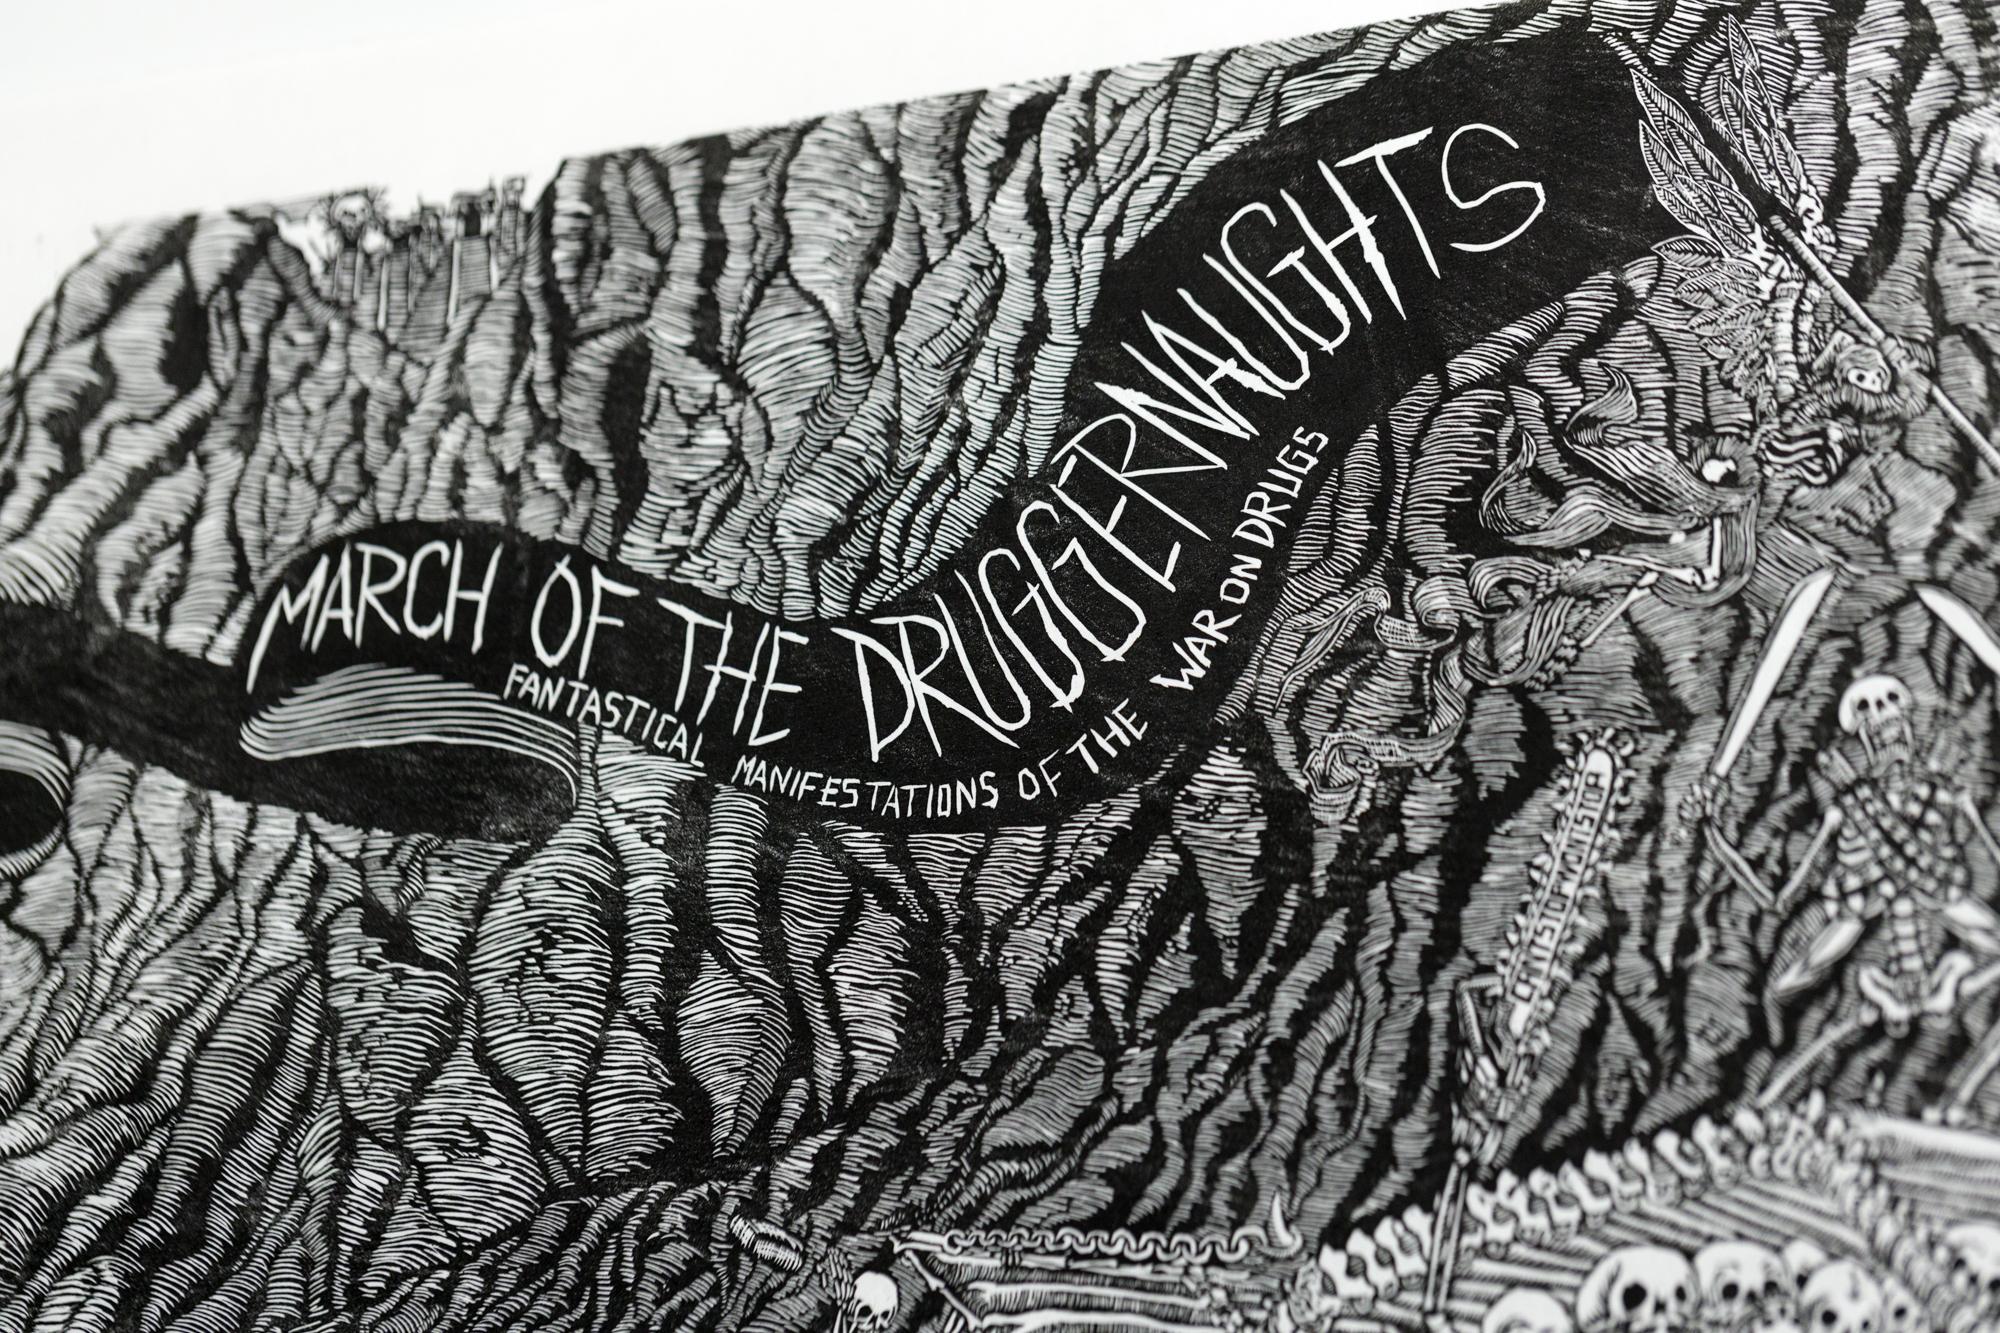 MARCH OF THE DRUGGERNAUGHTS
FANTASTICAL MANIFESTATIONS OF THE WAR ON DRUGS